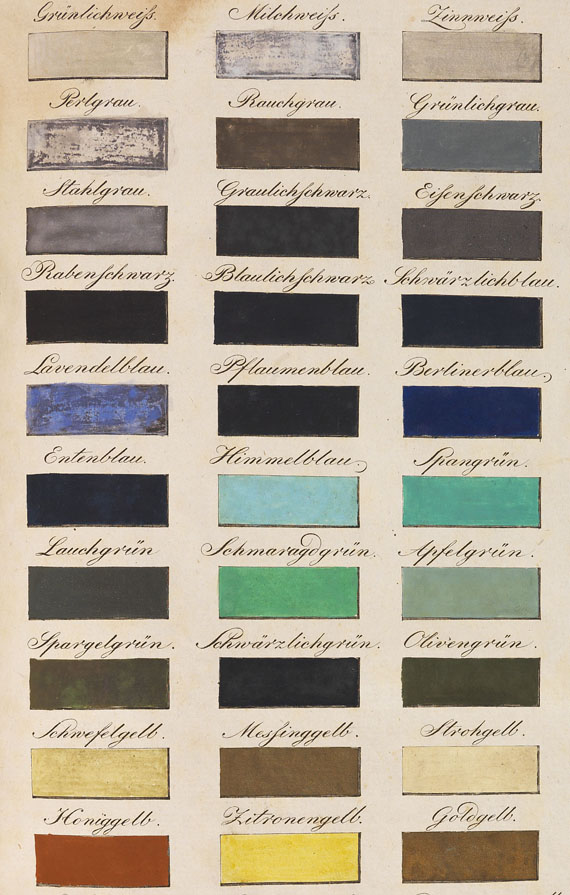 Grünlichweiſs. Milchweiſs. Zinnweiſs.
Perlgrau. Rauchgrau. Grünlichgrau.
Stahlgrau. Graulichſchwarz. Eiſenſchwarz.
Rabenſchwarz. Blaulichſchwarz Schwärzlichblau.
Lavendelblau. Pflaumenblau. Berlinerblau.
Entenblau. Himmelblau. Spangrün.
Lauchgrün Schmaragdgrün. Apfelgrün.
Spargelgrün. Schwärzlichgrün. Olivengrün.
Schwefelgelb. Meſsinggelb. Strohgelb.
Honiggelb. Zitronengelb. Goldgelb.